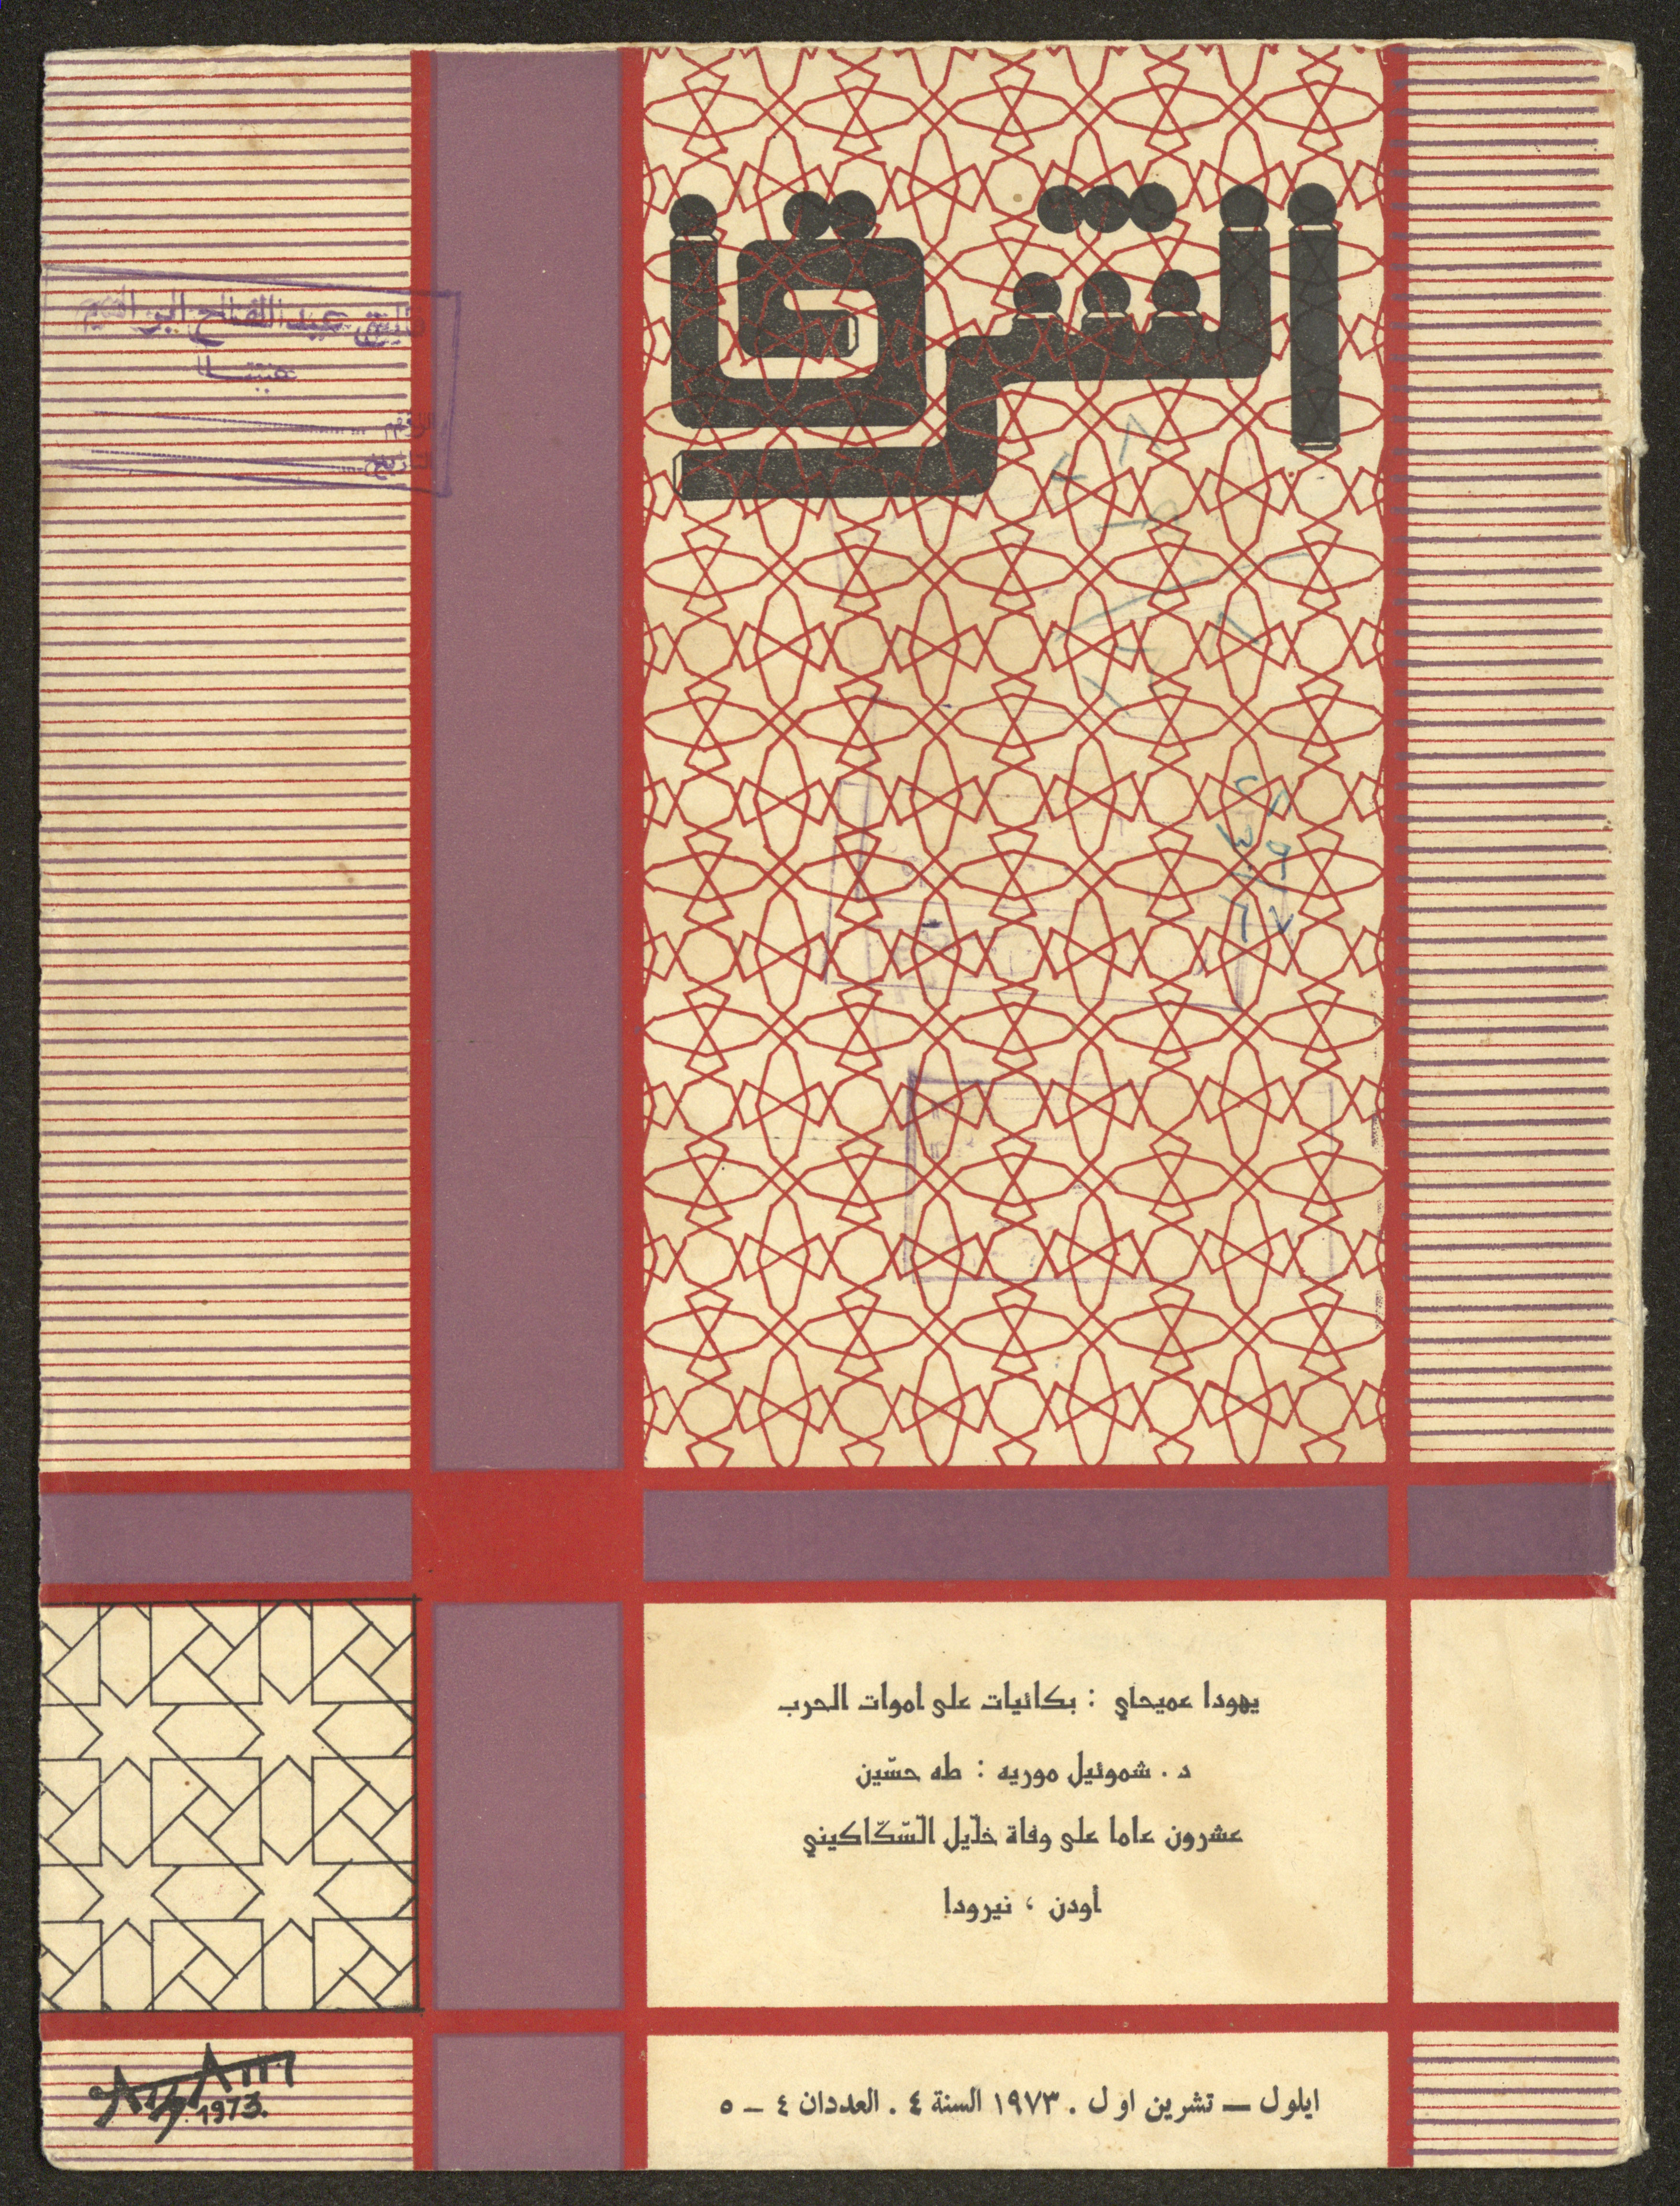 الشرق
شفيق عبد الفتاح ابو الهيم
الرقم
التاريخ
يهودا عميحاي : بكائيات على أموات الحرب
د . شموئيل موريه : طه حسّين
عشرون عاما على وفاة خلّيل السّكّاكيني
أودن ، نيرودا
ايلول — تشرين اول . ١٩٧٣ السنة ٤ . العددان ٤ – ٥
1973.